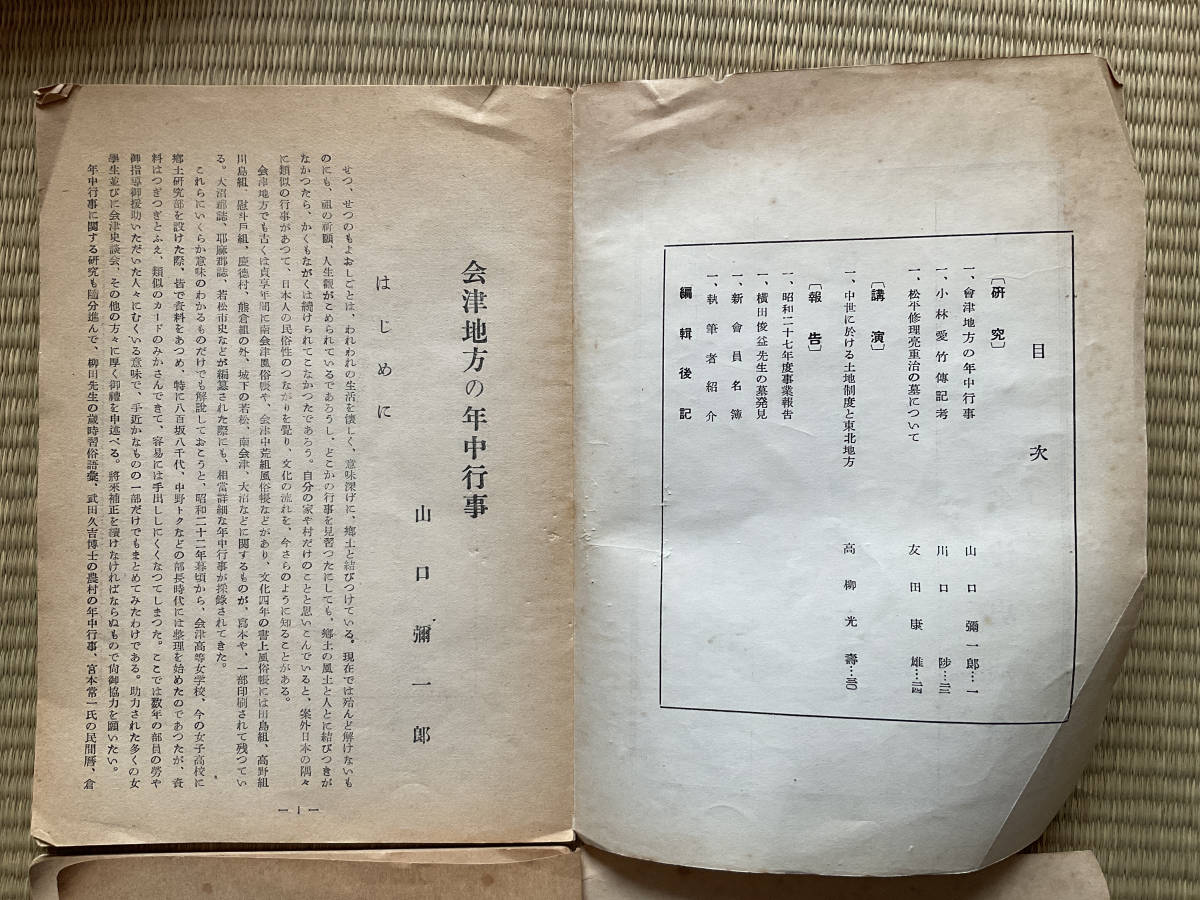 目次
〔研究〕
一、會津地方の年中行事 山口彌一郎…一
一、小林愛竹傳記考 川口陟…三
一、松平修理亮重治の墓について 友田康雄…二四
〔講演〕
一、中世に於ける土地制度と東北地方 高柳光壽…三〇
〔報告〕
一、昭和二十七年度事業報告
一、横田俊益先生の墓発見
一、新會員名簿
一、執筆者紹介
編輯後記
会津地方の年中行事
山口彌一郎
はじめに
せつ、せつのもよおしごとは、われわれの生活を懐しく、意味深げに、鄕土と結びつけている。現在では殆んど解けないも
のにも、祖の祈願、人生觀がこめられているであろうし、どこかの行事を見習つたにしても、鄕土の風土と人とに結びつきが
なかつたら、かくもながくは続けられてこなかつたであろう。自分の家や村だけのことと思いこんでいると、案外日本の隅々
に類似の行事があつて、日本人の民俗性のつながりを覺り、文化の流れを、今さらのように知ることがある。
会津地方でも古くは貞享年間に南会津風俗帳や、会津中荒組風俗帳などがあり、文化四年の書上風俗帳には田島組、高野組
川島組、慰斗戸組、慶徳村、熊倉組の外、城下の若松、南会津、大沼などに関するものが、寫本や、一部印刷されて残つてい
る。大沼郡誌、耶麻郡誌、若松市史などが編纂された際にも、相當詳細な年中行事が採錄されてきた。
これらにいくらか意味のわかるものだけでも解說しておこうと、昭和二十二年暮頃から、会津高等女学校、今の女子高校に
鄕土研究部を設けた際、皆で資料をあつめ、特に八百坂八千代、中野トクなどの部長時代には整理を始めたのであつたが、資
料はつぎつぎとふえ、類似のカードのみかさんできて、容易には手出ししにくくなつてしまつた。ここでは数年の部員の勞や
御指導御援助いただいた人々にむくいる意味で、手近かなものの一部だけでもまとめてみたわけである。助力された多くの女
學生並びに会津史談会、その他の方々に厚く御禮を申述べる。將来補正を續けなければならぬもので尙御協力を願いたい。
年中行事に関する研究も随分進んで、柳田先生の歲時習俗語彙、武田久吉博士の農村の年中行事、宮本常一氏の民間暦、倉
―1―